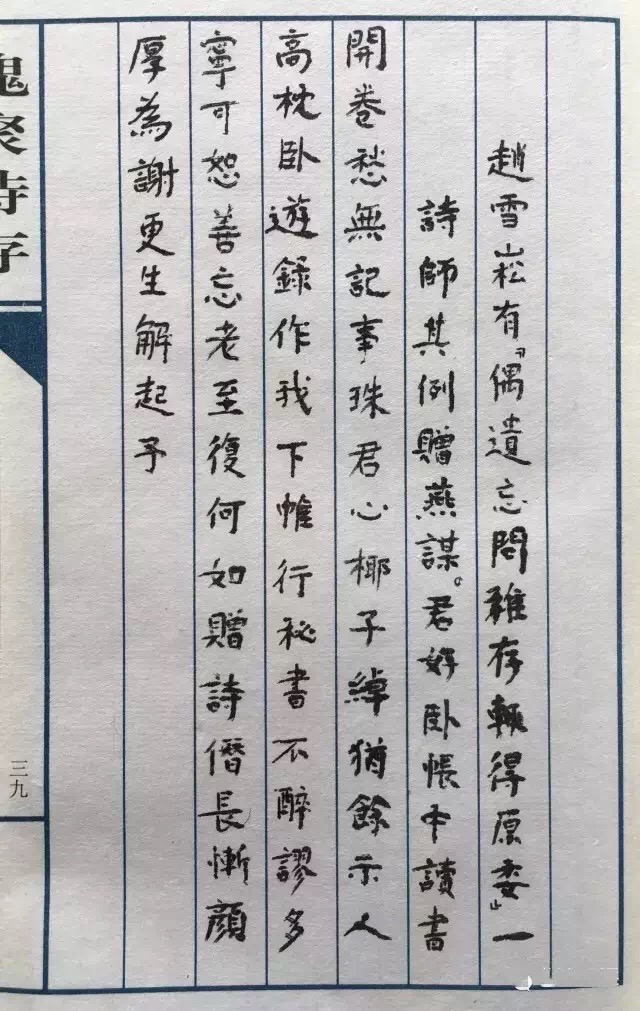 趙雪崧有「偶遺忘問稚存輒得原委」一
詩師其例贈燕謀。君好臥帳中讀書
開卷愁無記事珠君心椰子綽猶餘示人
高枕臥遊錄作我下帷行秘書不醉謬多
寧可恕善忘老至復何如贈詩僭長慚顏
厚為謝更生解起予
槐聚詩存
三九